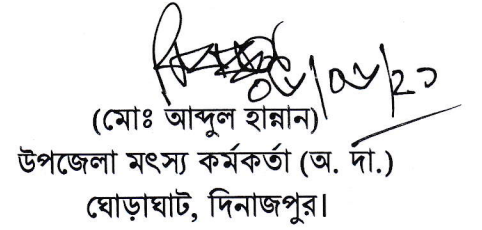 (মোঃ আব্দুল হান্নান)
উপজেলা মৎস্য কর্মকর্তা (অ. দা.)
ঘোড়াঘাট, দিনাজপুর।